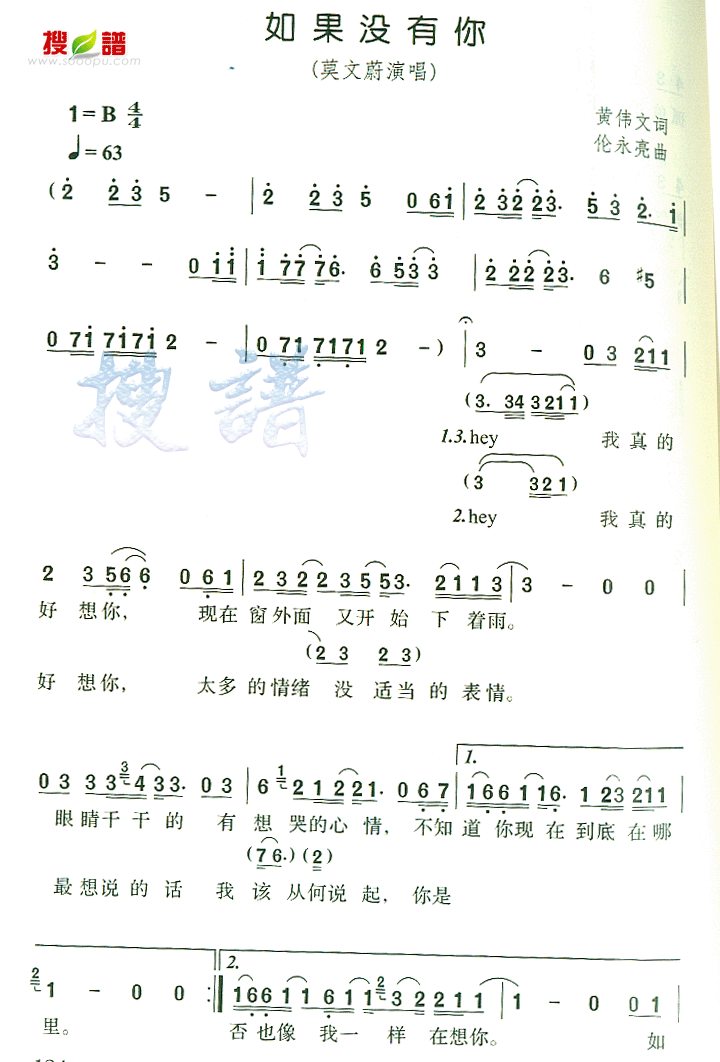 搜譜
www.sooopu.com
如果没有你
(莫文蔚演唱)
1=B 4/4
♩=63
黄伟文词
伦永亮曲
(2 2 3 5 - | 2 2 3 5 0 6 1 | 2 3 2 2 2 3. 5 3 2. 1 |
3 - - 0 1 1 | 1 7 7 7 6. 6 5 3 3 | 2 2 2 2 2 3. 6 #5 |
0 7 1 7 1 7 1 2 - | 0 7 1 7 1 7 1 2 -) | 3 - 0 3 2 1 1 |
(3. 3 4 3 2 1 1)
1.3. hey 我真的
(3 3 2 1)
2. hey 我真的
2 3 5 6 6 0 6 1 | 2 3 2 2 3 5 5 3. 2 1 1 3 | 3 - 0 0 |
好想你, 现在窗外面 又开始 下 着雨。
(2 3 2 3)
好想你, 太多的情绪 没 适当的表情。
1.
0 3 3 3 3 4 3 3. 0 3 | 6 1 2 1 2 2 1. 0 6 7 | 1 6 6 1 1 6. 1 2 3 2 1 1 |
眼睛干干的 有想哭的心情, 不知道你现在到底在哪
(7 6.) (2)
最想说的话 我该从何说起, 你是
2.
2 1 - 0 0 :‖ 1 6 6 1 1 6 1 2 3 2 2 1 1 | 1 - 0 0 1 |
里。 否也像 我一 样 在想你。 如